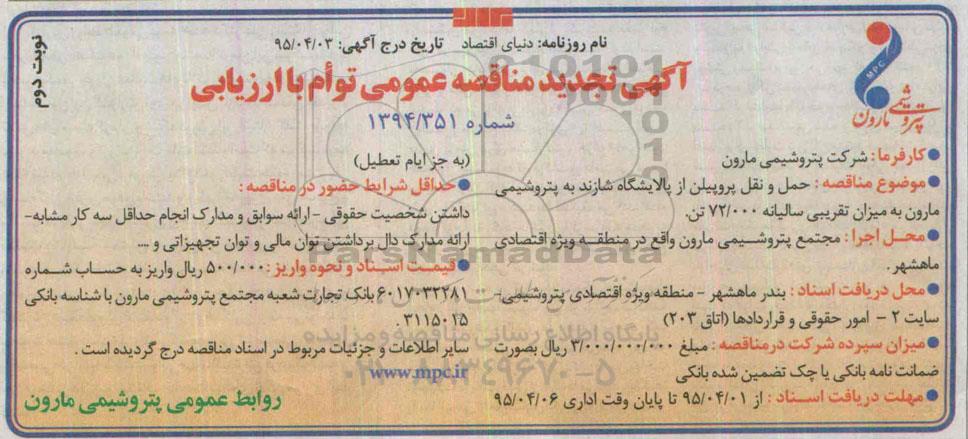 نوبت دوم
نام روزنامه: دنیای اقتصاد    تاریخ درج آگهی: ۹۵/۰۴/۰۳
آگهی تجدید مناقصه عمومی توأم با ارزیابی
شماره ۱۳۹۴/۳۵۱
MPC
پتروشیمی مارون
● کارفرما: شرکت پتروشیمی مارون
● موضوع مناقصه: حمل و نقل پروپیلن از پالایشگاه شازند به پتروشیمی
مارون به میزان تقریبی سالیانه ۷۲/۰۰۰ تن.
● محـل اجرا: مجتمع پتروشـیمی مارون واقع در منطقـه ویژه اقتصادی
ماهشهر.
● محل دریافت اسناد: بندر ماهشهر - منطقه ویژه اقتصادی پتروشیمی-
سایت ۲ - امور حقوقی و قراردادها (اتاق ۲۰۳)
● میزان سپرده شرکت درمناقصه: مبلغ ۳/۰۰۰/۰۰۰/۰۰۰ ریال بصورت
ضمانت نامه بانکی یا چک تضمین شده بانکی
● مهلت دریافت اسـناد: از ۹۵/۰۴/۰۱ تا پایان وقت اداری ۹۵/۰۴/۰۶
(به جز ایام تعطیل)
● حداقل شرایط حضور در مناقصه:
داشتن شخصیت حقوقی - ارائه سوابق و مدارک انجام حداقل سه کار مشابه-
ارائه مدارک دال برداشتن توان مالی و توان تجهیزاتی و ....
● قیمـت اسـناد و نحوه واریز: ۵۰۰/۰۰۰ ریال واریز به حسـاب شـماره
۶۰۱۷۰۳۲۲۸۱ بانک تجارت شعبه مجتمع پتروشیمی مارون با شناسه بانکی
۳۱۱۵۰۱۵
سایر اطلاعات و جزئیات مربوط در اسناد مناقصه درج گردیده است.
www.mpc.ir
روابط عمومی پتروشیمی مارون
ParsNamadData
پایگاه اطلاع رسانی مناقصه و مزایده
۰۲۱-۸۸۳۴۹۶۷۰-۵